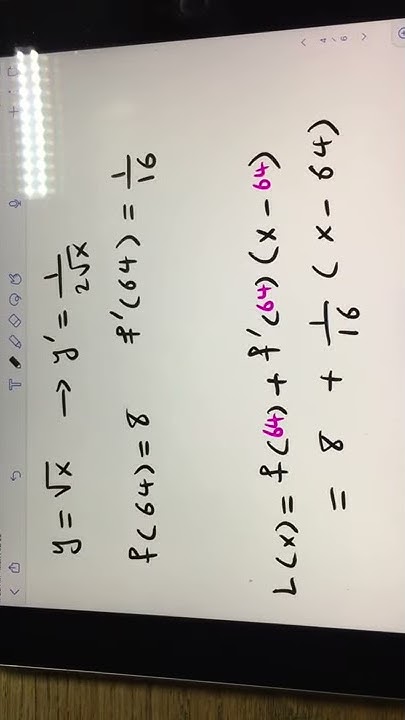 y = √x → y' = 1/(2√x)
f(64) = 8 f'(64) = 1/16
L(x) = f(64) + f'(64)(x - 64)
= 8 + 1/16 (x - 64)